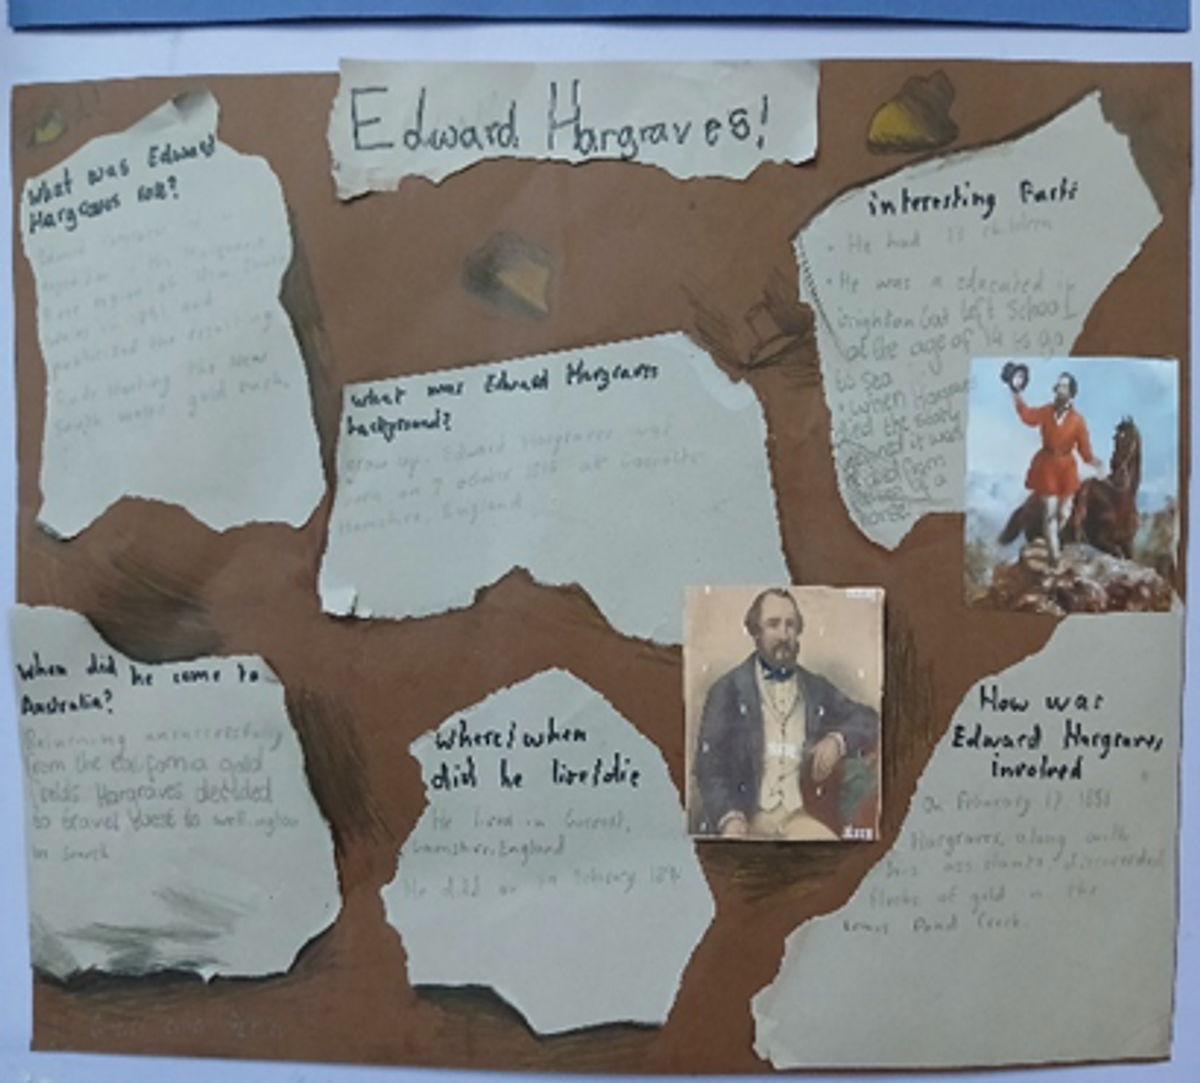 Edward Hargraves!
What was Edward
Hargraves role?
Edward Hargraves
region of New South
Wales in 1851 and
publicised the resulting
finds starting the New
South Wales gold rush.
What was Edward Hargraves
background?
grow up. Edward Hargraves was
born on 7 october 1816 at
Hamshire, England
interesting Facts
• He had 13 children
• He was a educated in
brighton but left School
at the age of 14 to go
to sea
• When Hargraves
died the
it was
horse.
When did he come to
Australia?
Returning unsuccessfully
from the california gold
fields Hargraves decided
to travel west to wellington
in search
Where/when
did he live/die
He lived in Gosport,
Hamshire, England
He died on
How was
Edward Hargraves
involved
On February 12 1851
Hargraves, along with
his assistants, discovered
flecks of gold in the
Lewis Pond Creek.